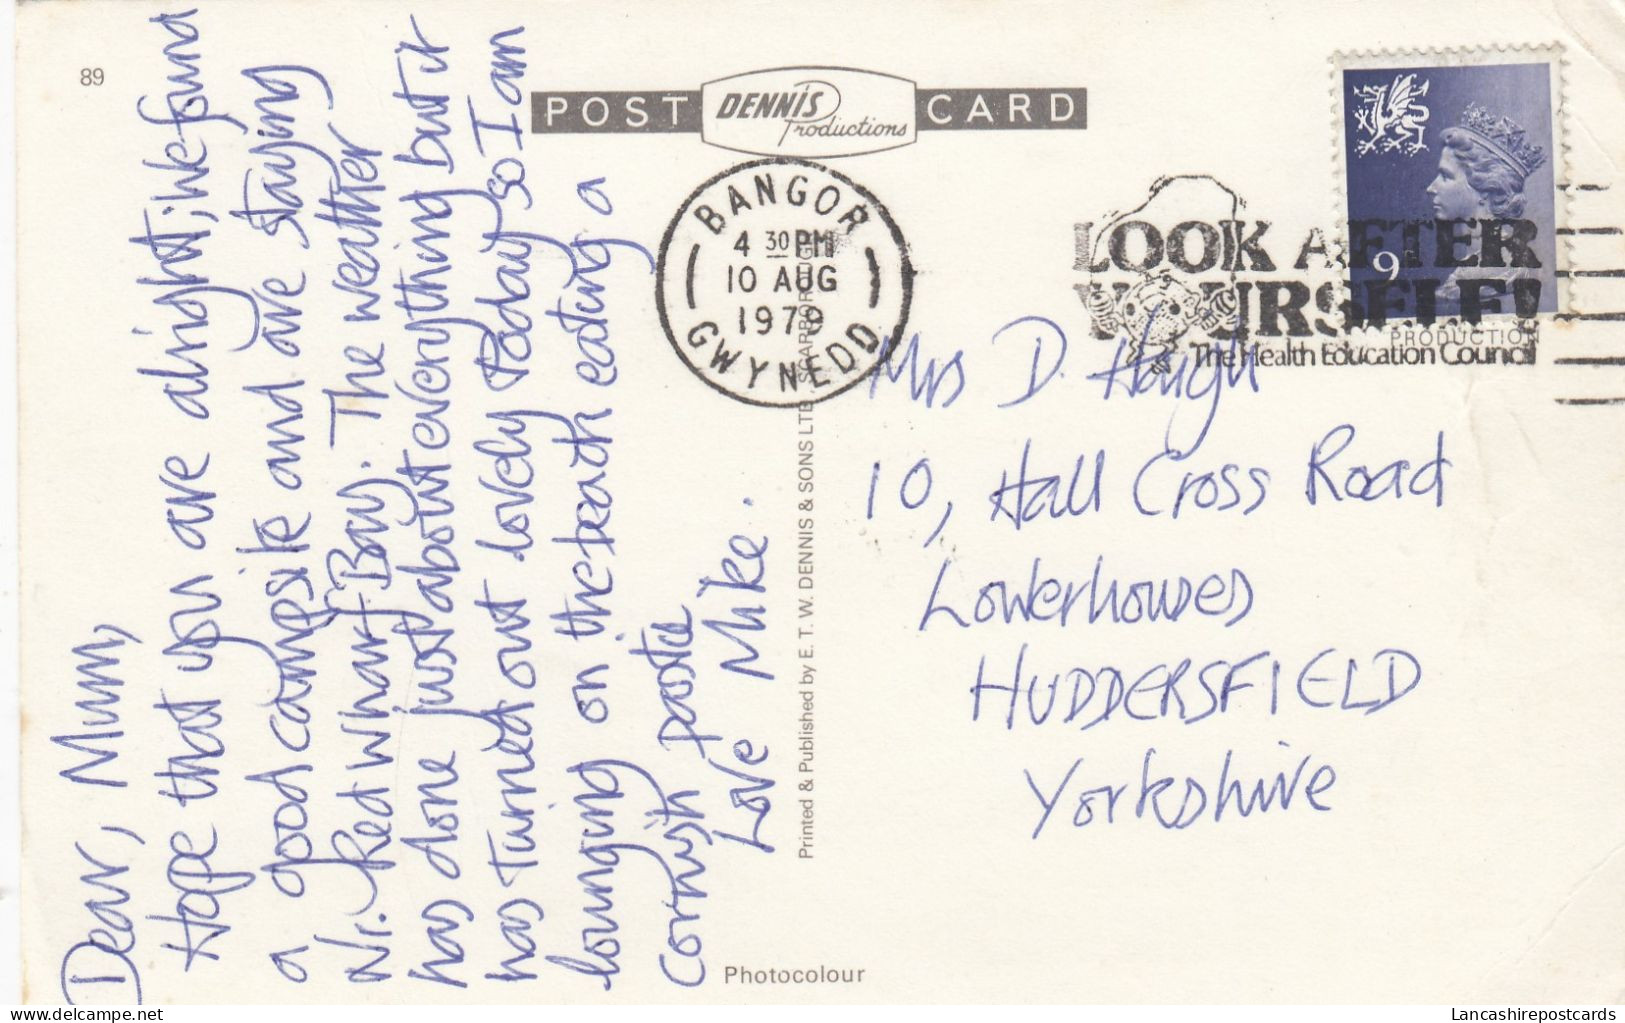 89
POST DENNIS Productions CARD
BANGOR
4 30 PM
10 AUG
1979
GWYNEDD
LOOK AFTER
YOURSELF!
The Health Education Council
9
PRODUCTION
Dear, Mum,
Hope that you are alright; We found
a good campsite and are staying
Nr. Red Wharf Bay. The weather
has done just about everything but it
has turned out lovely today so I am
lounging on the beach eating a
cornish pastie
Love Mike.
Printed & Published by E. T. W. DENNIS & SONS LTD SCARBOROUGH
Photocolour
Mrs D. Haigh
10, Hall Cross Road
Lowerhouses
HUDDERSFIELD
Yorkshire
www.delcampe.net
Lancashirepostcards